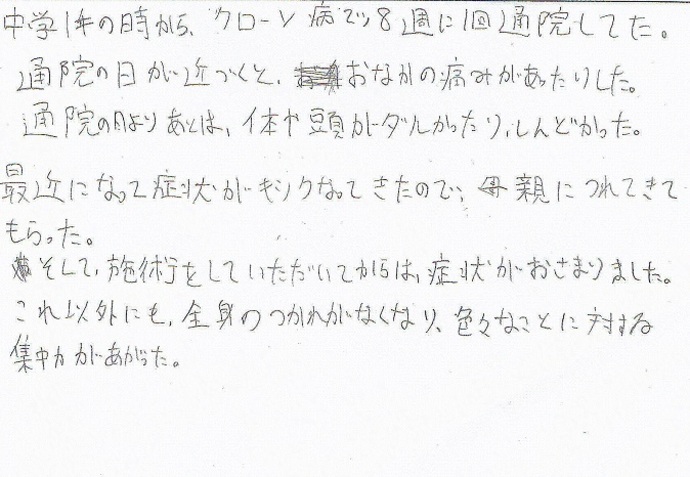 中学1年の時から、クローン病で、8週に1回通院してた。
通院の日が近づくと、おなかの痛みがあったりした。
通院の日よりあとは、体や頭がダルかったり、しんどかった。
最近になって症状がキツクなってきたので、母親につれてきて
もらった。
そして、施術をしていただいてからは、症状がおさまりました。
これ以外にも、全身のつかれがなくなり、色々なことに対する
集中力があがった。